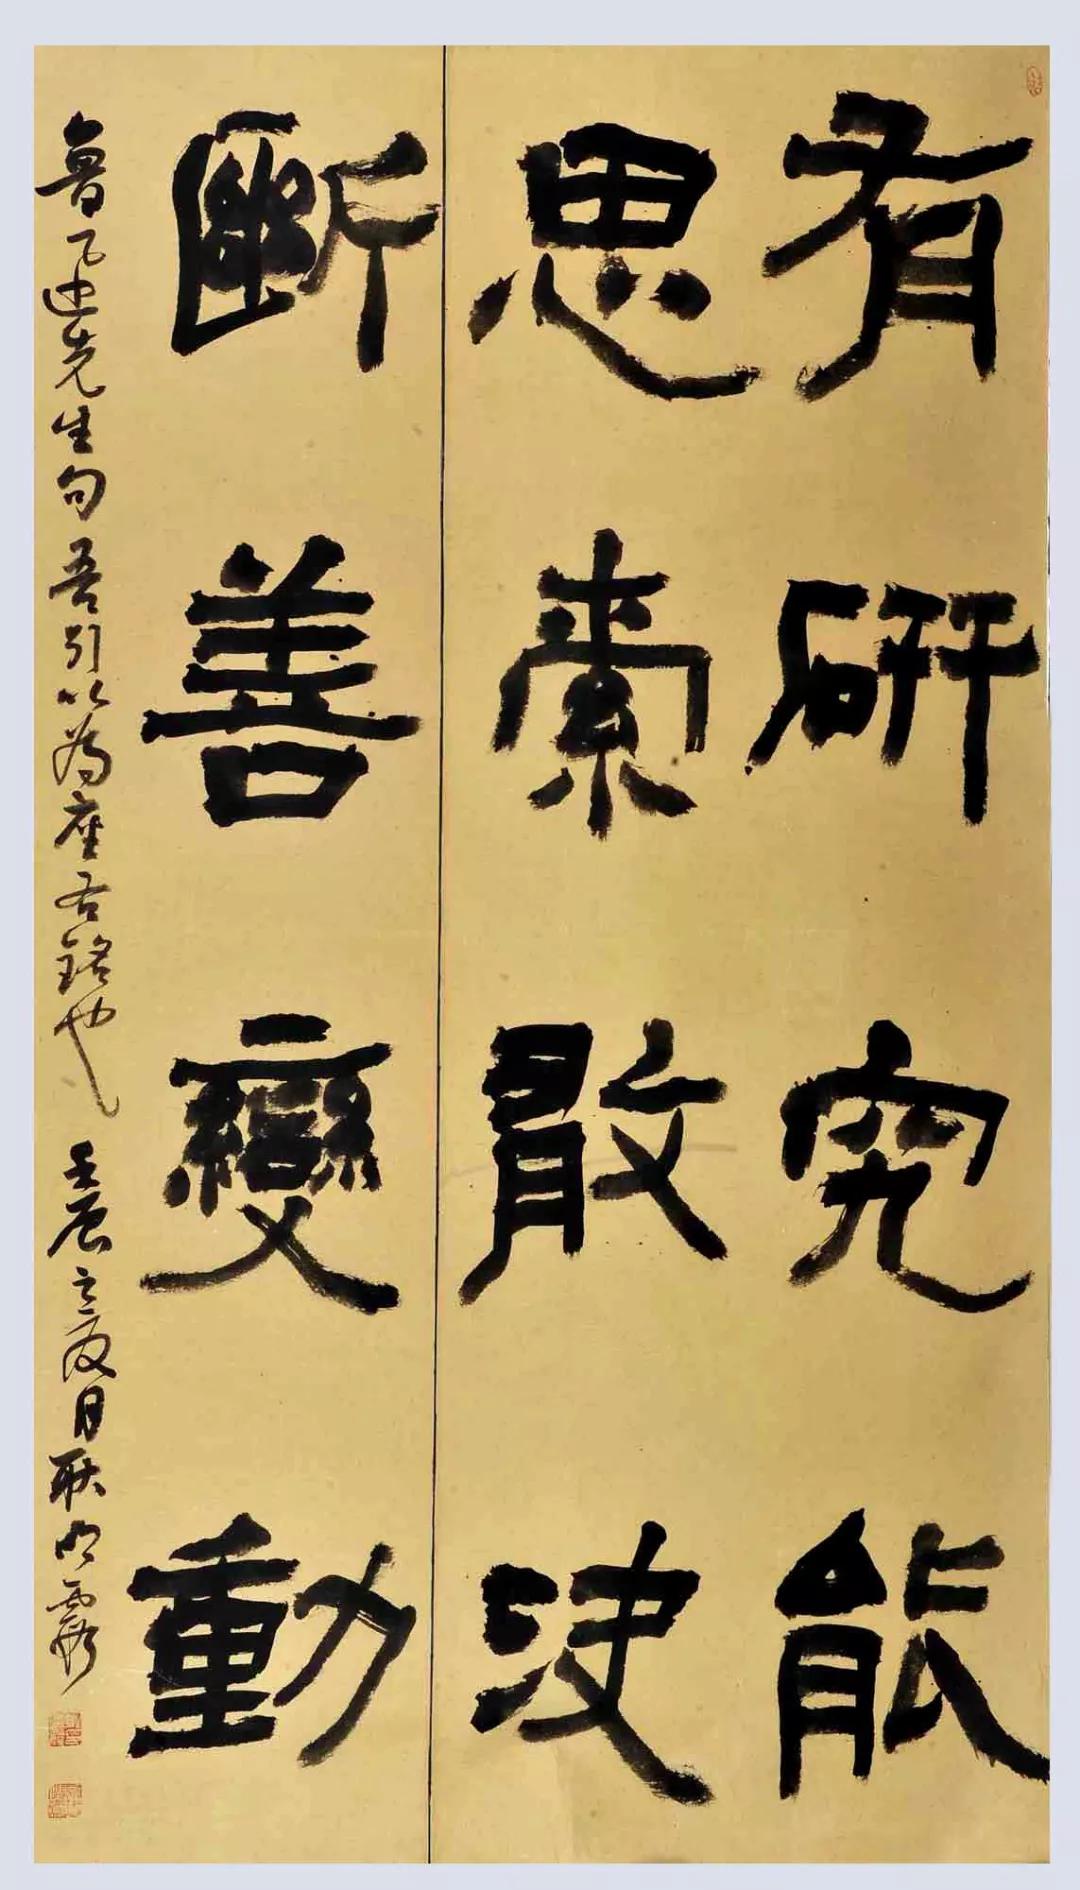 有研究能
思索敢决
斷善變動
魯乙迚先生句吾引以為座右銘也 壬辰立夏日耿明霞